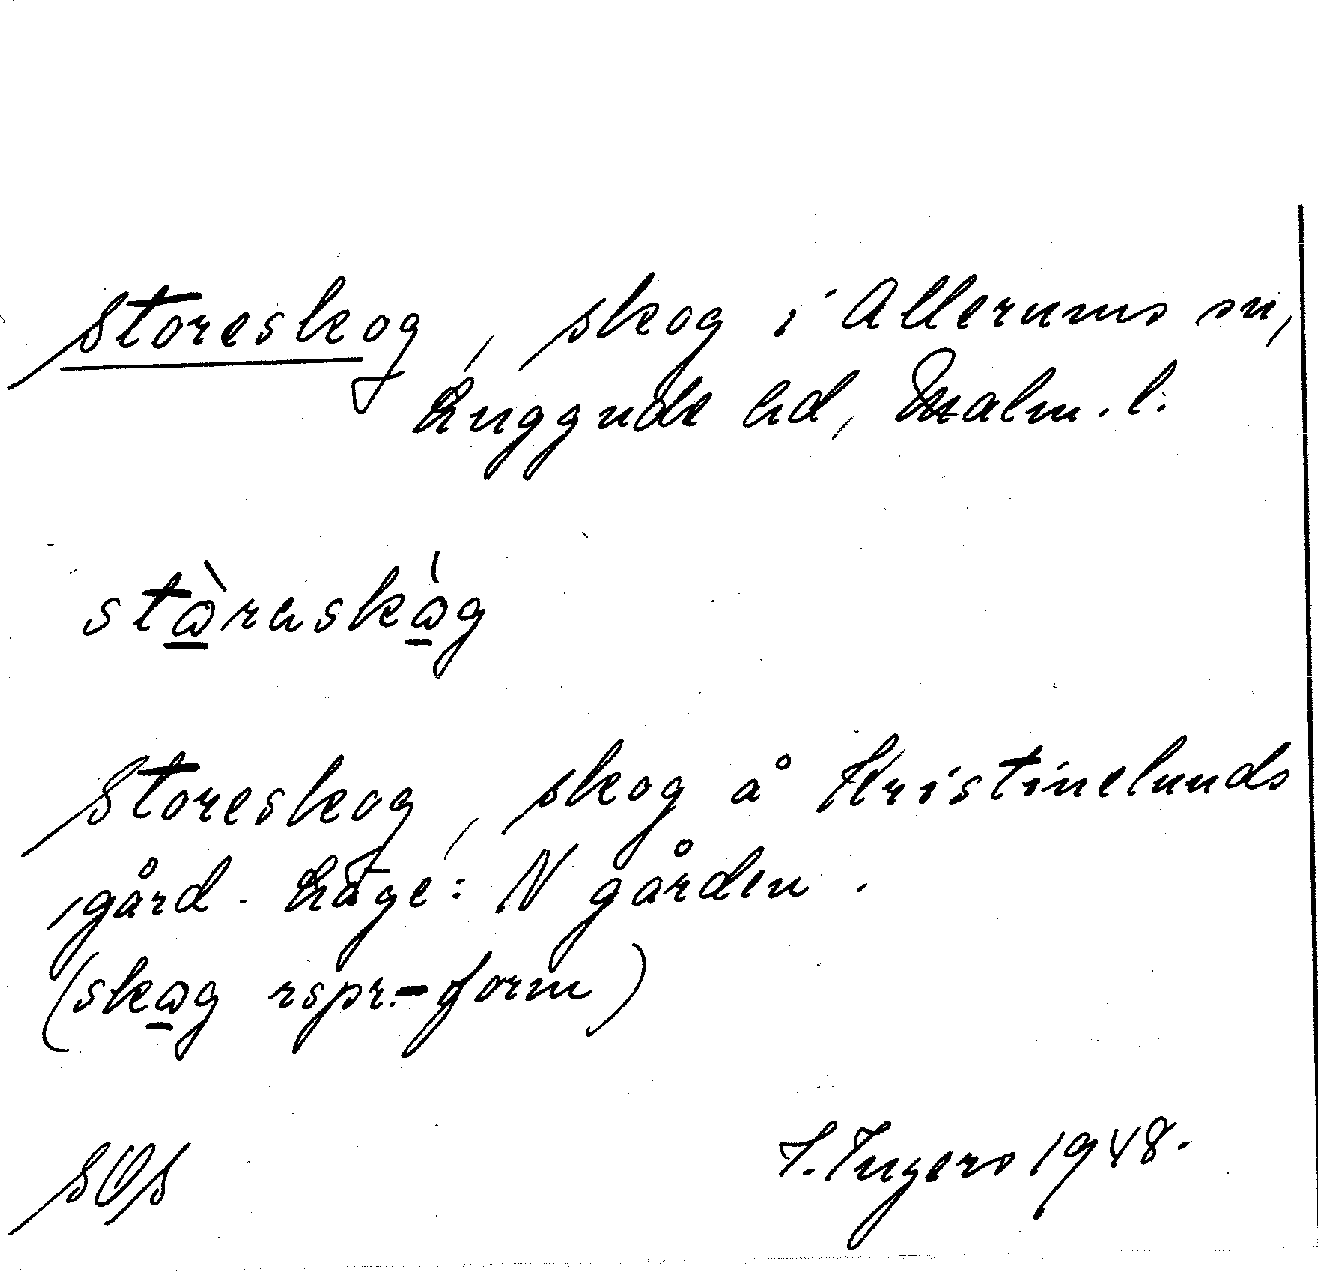 Storeskog, skog i Allerums sn,
Luggude hd, Malm. l.
stὼ̱raskώ̱g
Storeskog, skog å Kristinelunds
gård. Läge: N gården.
(skω̱g rspr.-form)
SOS I. Ingers 1948.